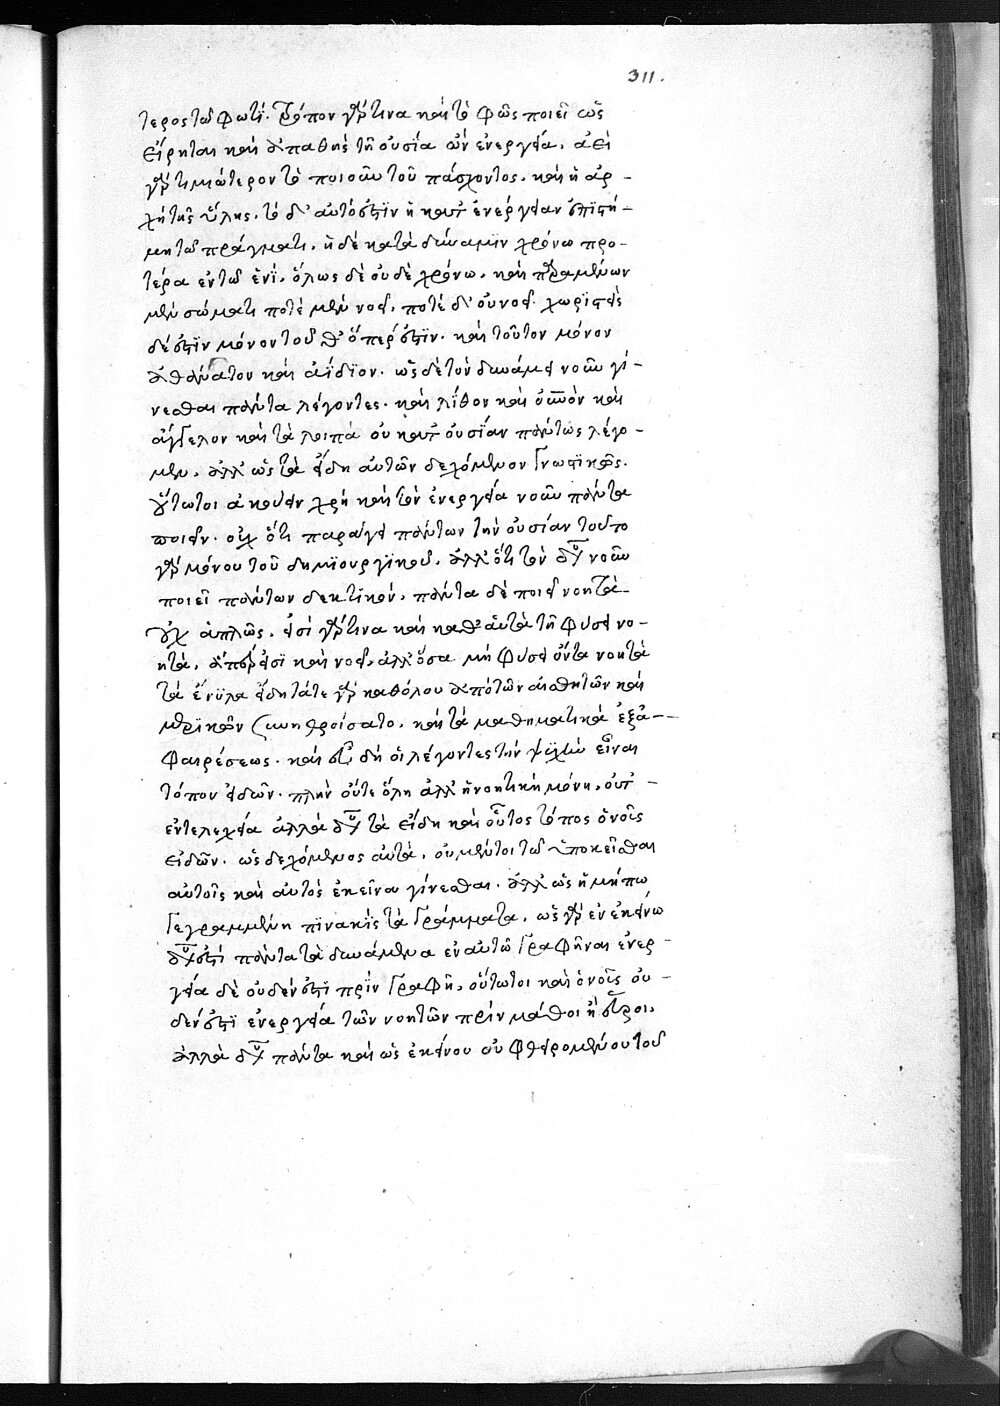 311.
τερος τῶ φωτί. τρόπον γάρ τινα καὶ τὸ φῶς ποιεῖ ὡς
εἴρηται καὶ ἀπαθὴς τῆ οὐσία ὢν ἐνεργεία. ἀεὶ
γὰρ τιμιώτερον τὸ ποιοῦν τοῦ πάσχοντος. καὶ ἡ ἀρ-
χὴ τῆς ὕλης. τὸ δ' αὐτό ἐστὶν ἡ κατ' ἐνέργειαν ἐπιστή-
μη τῶ πράγματι. ἡ δὲ κατὰ δύναμιν χρόνω προ-
τέρα ἐν τῶ ἑνί. ὅλως δὲ οὐδὲ χρόνω. καὶ
μὲν σώματι ποτὲ μὲν νοεῖ. ποτὲ δ' οὐ νοεῖ. χωρισθεὶς
δέ ἐστὶν μόνον τοῦθ' ὅπερ ἐστὶν. καὶ τοῦτον μόνον
ἀθάνατον καὶ ἀίδιον. ὡς δὲ τὸν δυνάμει νοῦν γί-
νεσθαι πάντα λέγοντες. καὶ λίθον καὶ οὐρανὸν καὶ
ἄγγελον καὶ τὰ λοιπὰ οὐ κατ' οὐσίαν πάντως λέγο-
μεν. ἀλλ' ὡς τὰ εἴδη αὐτῶν δεχόμενον γνωστικῶς.
οὕτω τοι ἀκούειν χρὴ καὶ τὸν ἐνεργεία νοῦν πάντα
ποιεῖν. οὐχ ὅτι παράγει πάντων τὴν οὐσίαν τοῦτο
γὰρ μόνου τοῦ δημιουργικοῦ. ἀλλ' ὅτι τὸν δυνάμει νοῦν
ποιεῖ πάντων δεκτικόν. πάντα δὲ ποιεῖ νοητὰ
οὐχ ἁπλῶς. εἰσὶ γάρ τινα καὶ καθ' αὑτὰ τῆ φύσει νο-
ητά. ἅπερ εἰσὶ καὶ νοεῖ. ἀλλ' ὅσα μὴ φύσει ὄντα νοητὰ
τὰ ἔνυλα εἴδη τά τε γὰρ καθόλου ἀπὸ τῶν αἰσθητῶν καὶ
μερικῶν συνηθροίσατο. καὶ τὰ μαθηματικὰ ἐξ ἀ-
φαιρέσεως. καὶ εὖ δὴ οἱ λέγοντες τὴν ψυχὴν εἶναι
τόπον εἰδῶν. πλὴν οὔτε ὅλη ἀλλ' ἡ νοητικὴ μόνη. οὔτ'
ἐντελεχεία ἀλλὰ δυνάμει τὰ εἴδη καὶ οὗτος τόπος ὁ νοῦς
εἰδῶν. ὡς δεχόμενος αὐτά. οὐ μέντοι τῶ ὑποκεῖσθαι
αὐτοῖς καὶ αὐτὸς ἐκεῖνα γίνεσθαι. ἀλλ' ὡς ἡ μήπω
γεγραμμένη πινακὶς τὰ γράμματα. ὡς γὰρ ἐν ἐκείνω
δυνάμει ἐστὶ πάντα τὰ δυνάμενα ἐν αὐτῶ γραφῆναι ἐνερ-
γεία δὲ οὐδέν ἐστι πρὶν γραφῆ, οὕτω τοι καὶ ὁ νοῦς οὐ-
δέν ἐστι ἐνεργεία τῶν νοητῶν πρὶν μάθοι ἢ εὕροι.
ἀλλὰ δυνάμει πάντα καὶ ὡς ἐκείνου οὐ φθειρομένου τοῦ